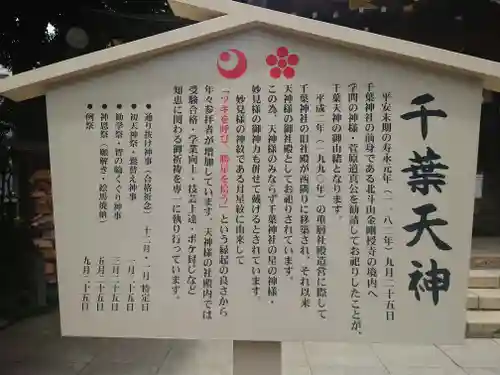 千葉天神
平安末期の寿永元年(一一八二年)九月二十五日
千葉神社の前身である北斗山金剛授寺の境内へ
学問の神様・菅原道真公を勧請してお祀りしたことが、
千葉天神の御由緒となります。
平成二年(一九九〇年)の重層社殿造営に際して
千葉神社の旧社殿が西隣りに移築され、それ以来
天神様の御社殿としてお祀りされています。
この為、天神様のみならず千葉神社の星の神様・
妙見様の御神力も併せて戴けるとされています。
妙見様の御神紋である月星紋に由来して
「ツキを呼びて、勝星を拾う」という縁起の良さから
年々参拝者が増加しています。天神様の社殿内では
受験合格・学業向上・技芸上達・ボケ封じなど
知恵に関わる御祈祷を専一に執り行っています。
● 通り抜け神事(合格祈念) 十二月・一月 特定日
● 初天神祭・鷽替え神事 一月二十五日
● 勧学祭・智の輪くぐり神事 三月二十五日
● 神恩祭(願解き・絵馬焼納) 五月二十五日
● 例祭 九月二十五日